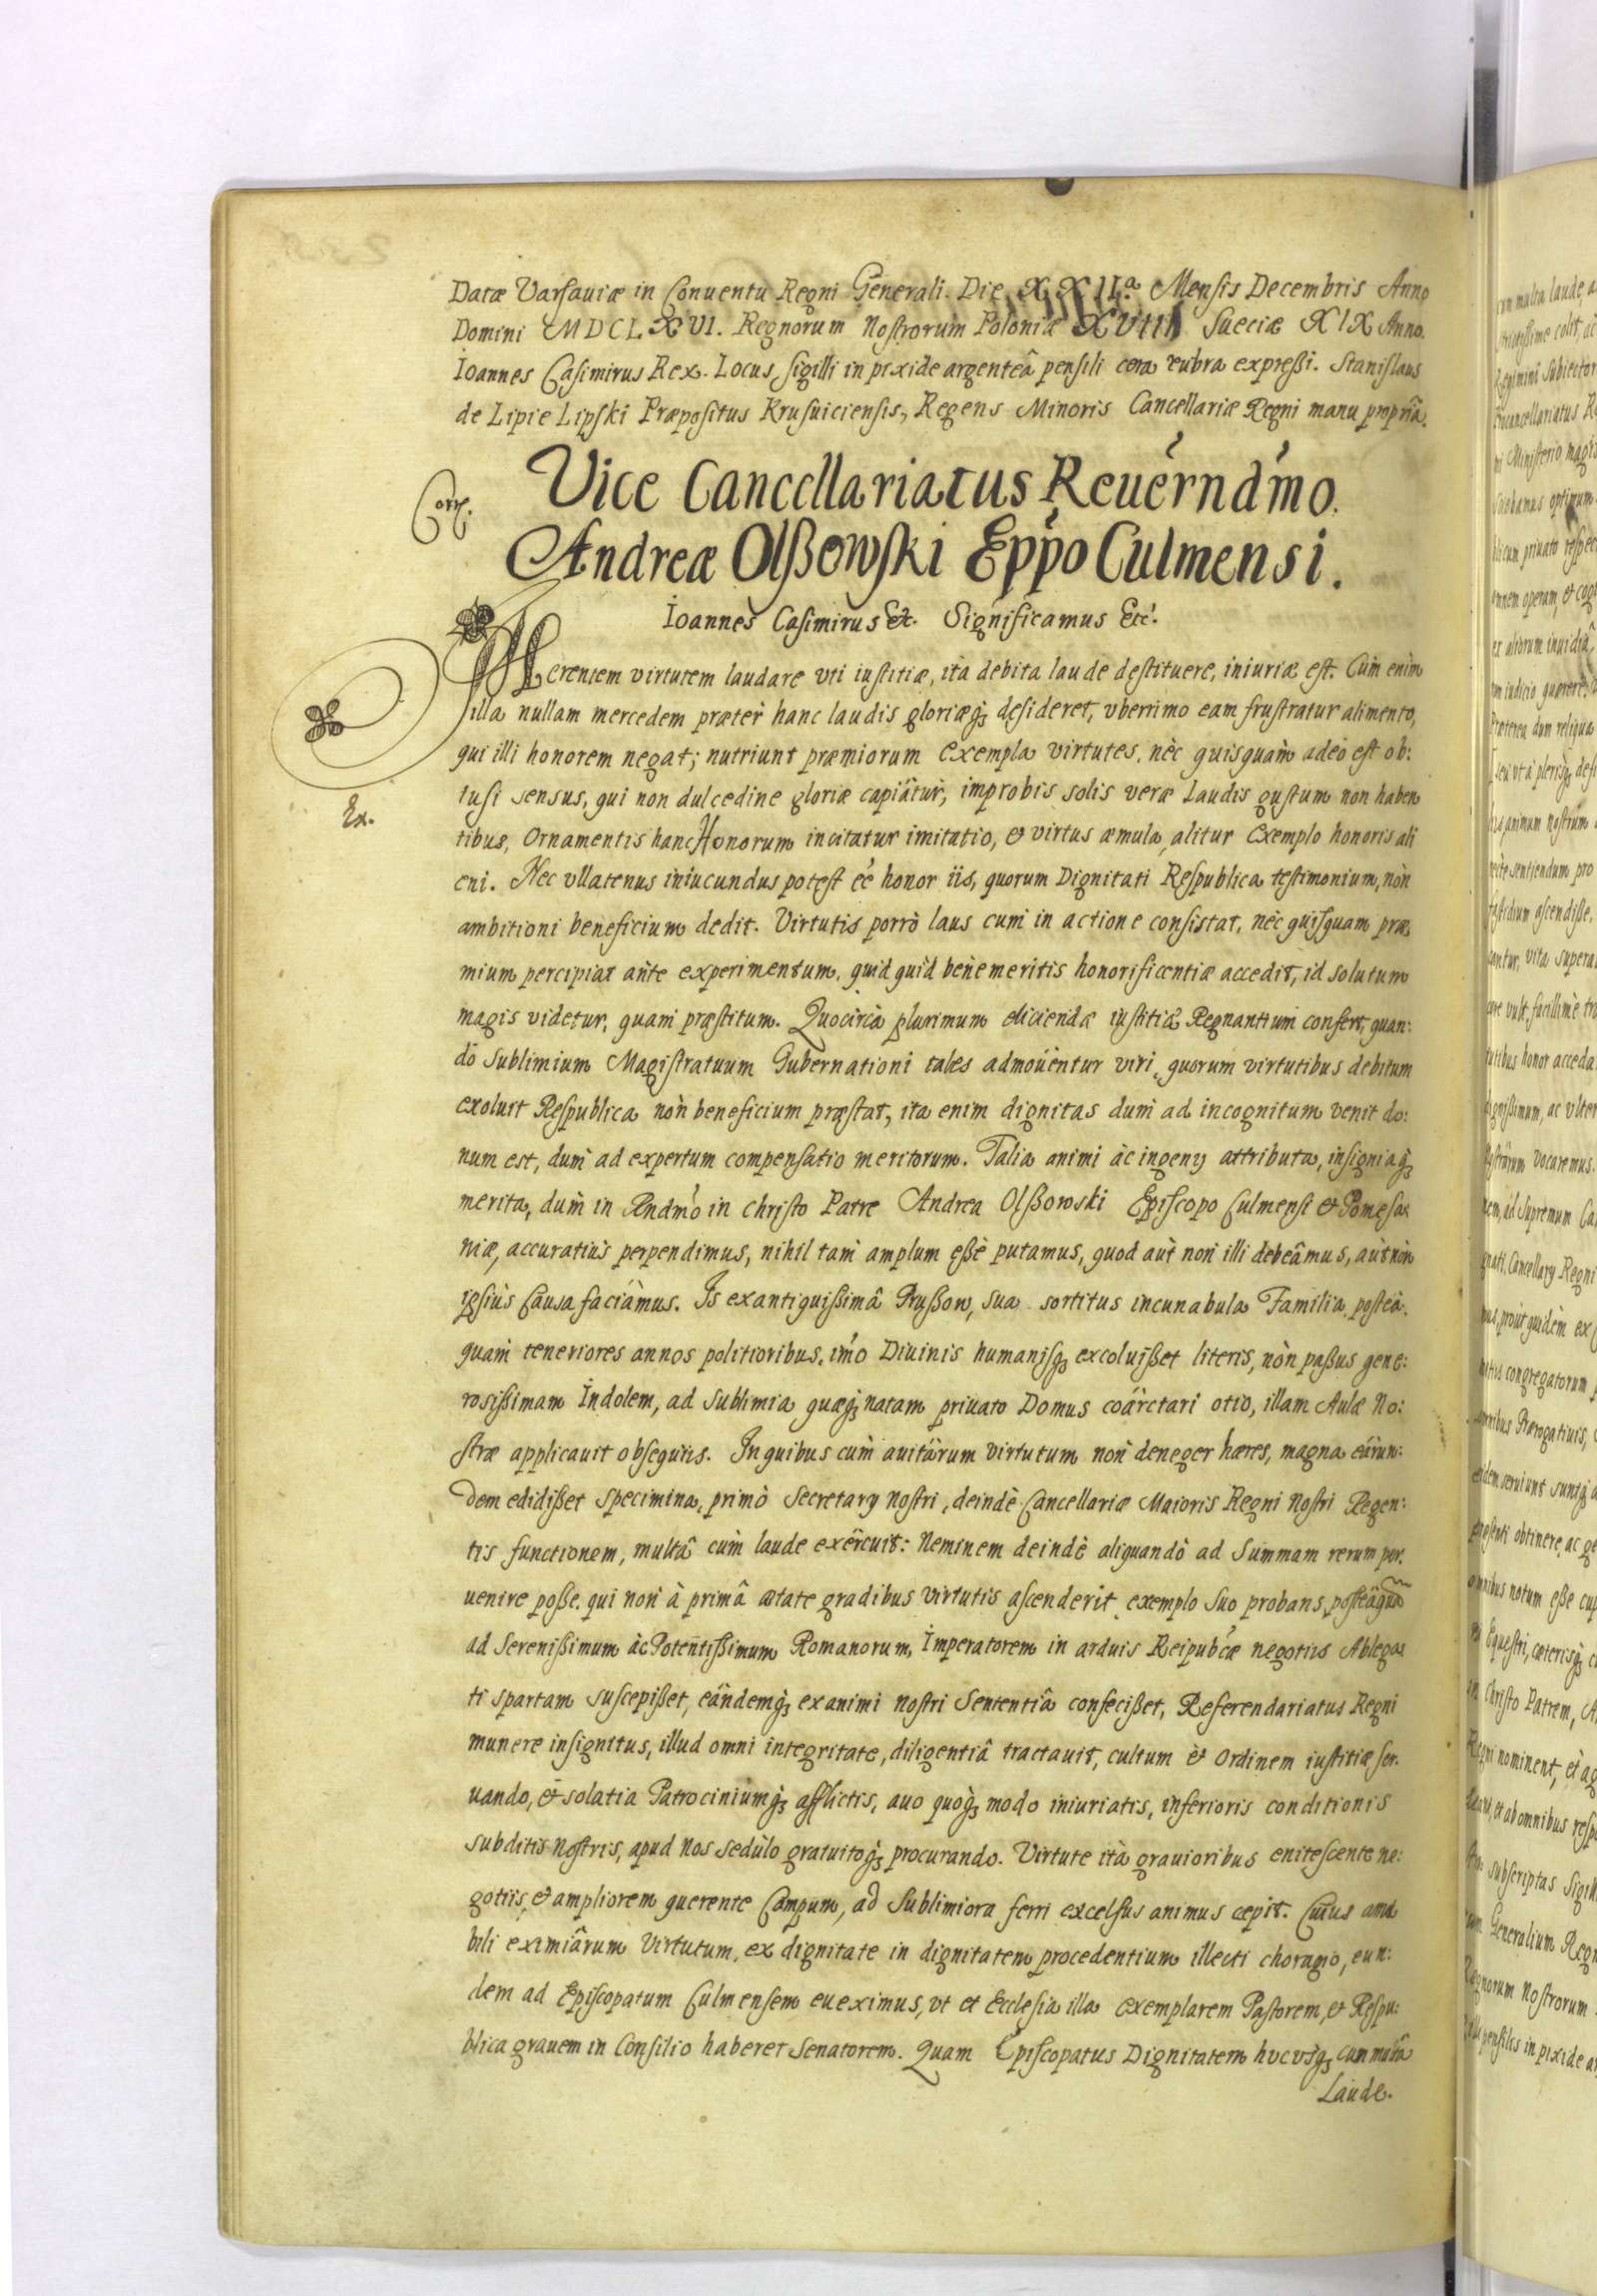 Datæ Varsauiæ in Conuentu Regni Generali. Die XXII.a Mensis Decembris Anno
Domini MDCLXVI. Regnorum Nostrorum Poloniæ XVIII Sueciæ XIX Anno.
Ioannes Casimirus Rex. Locus sigilli in pixide argenteâ pensili cera rubra expressi. Stanislaus
de Lipie Lipski Præpositus Krusuiciensis, Regens Minoris Cancellariæ Regni manu propriâ.
Corr.
Vice Cancellariatus Reuerndmo.
Andreæ Olßowski Eppo Culmensi.
Ioannes Casimirus &c. Significamus Etc.
Merentem virtutem laudare vti iustitiæ, ità debita laude destituere, iniuriæ est. Cum enim
illa nullam mercedem præter hanc laudis gloriæq; desideret, vberrimo eam frustratur alimento,
qui illi honorem negat; nutriunt præmiorum exempla virtutes, nèc quisquam adeò est ob:
tusi sensus, qui non dulcedine gloriæ capiatur, improbis solis veræ Laudis gustum non haben
Ex.
tibus, Ornamentis hanc Honorum incitatur imitatio, & virtus æmula, alitur Exemplo honoris ali
eni. Nec vllatenus iniucundus potest eé honor iis, quorum Dignitati Respublica testimonium, nòn
ambitioni beneficium dedit. Virtutis porrò laus cum in actione consistat, nèc quisquam præ
mium percipiat ante experimentum, quidquid benemeritis honorificentiæ accedit, id solutum
magis videtur, quam præstitum. Quocircà plurimum eliciendæ iustitiâ Regnantium confert, quan:
dò sublimium Magistratuum Gubernationi tales admouentur viri, quorum virtutibus debitum
exoluit Respublica nòn beneficium præstat, ita enim dignitas dum ad incognitum venit do:
num est, dum ad expertum compensatio meritorum. Talia animi àc ingenij attributa, insigniaq;
merita, dum in Rndmo in Christo Patre Andrea Olßowski Episcopo Culmensi & Pomesa
niæ, accuratiùs perpendimus, nihil tam amplum eßè putamus, quod aut non illi debeâmus, aut nòn
ipsiùs Causa faciamus. Is ex antiquißimâ Prußow, sua sortitus incunabula Familia, posteà
quam teneriores annos politioribus, imò Diuinis humanisq; excoluißet literis, nòn paßus gene:
rosißimam Indolem, ad sublimia quæq; natam priuato Domus coarctari otio, illam Aulæ No:
stræ applicauit obsequiis. In quibus cum auitârum virtutum non deneger hæres, magna earun:
dem edidißet specimina, primò Secretarij nostri, deindè Cancellariæ Maioris Regni Nostri Regen:
tis functionem, multâ cùm laude exercuit: Neminem deindè aliquandò ad Summam rerum per:
uenire poße, qui non à primâ ætate gradibus virtutis ascenderit exemplo suo probans, posteaqua
ad Serenißimum àc Potentißimum Romanorum Imperatorem in arduis Reipubcæ negotiis Ablega
ti spartam suscepißet, eandemq; ex animi nostri sententiâ confecißet, Referendariatus Regni
munere insignitus, illud omni integritate, diligentiâ tractauit, cultum èt ordinem iustitiæ ser:
uando, & solatia Patrociniumq; afflictis, auo quoq; modo iniuriatis, inferioris conditionis
subditis nostris, apud nos sedùlo gratuitoq; procurando. Virtute ità grauioribus enitescente ne:
gotiis, & ampliorem querente Campum, ad Sublimiora ferri excelsus animus cepit. Cuius ama
bili eximiârum Virtutum, ex dignitate in dignitatem procedentium illecti choragio, eun:
dem ad Episcopatum Culmensem eueximus, vt et Ecclesia illa exemplarem Pastorem, et Respu:
blica grauem in Consilio haberet Senatorem. Quam Episcopatus Dignitatem hvcvsq; cum multa
Laude.